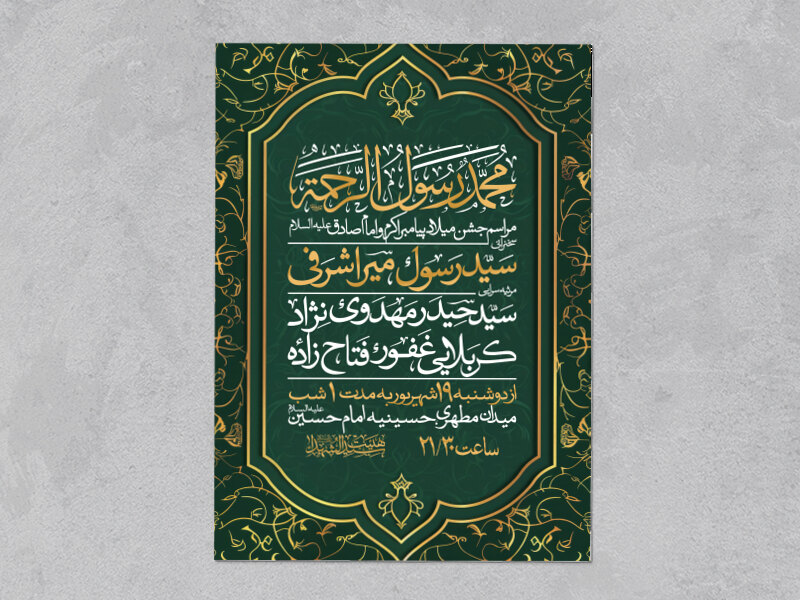 محمد رسول الرحمة
مراسم جشن میلاد پیامبر اکرم و امام صادق علیه السلام
سخنرانی
سید رسول میراشرفی
مرثیه سرایی
سید حیدر مهدوی نژاد
کربلایی غفور فتاح زاده
از دوشنبه ۱۹ شهریور به مدت ۱ شب
میدان مطهری، حسینیه امام حسین علیه السلام
ساعت ۲۱/۳۰
هیئت سیدالشهدا